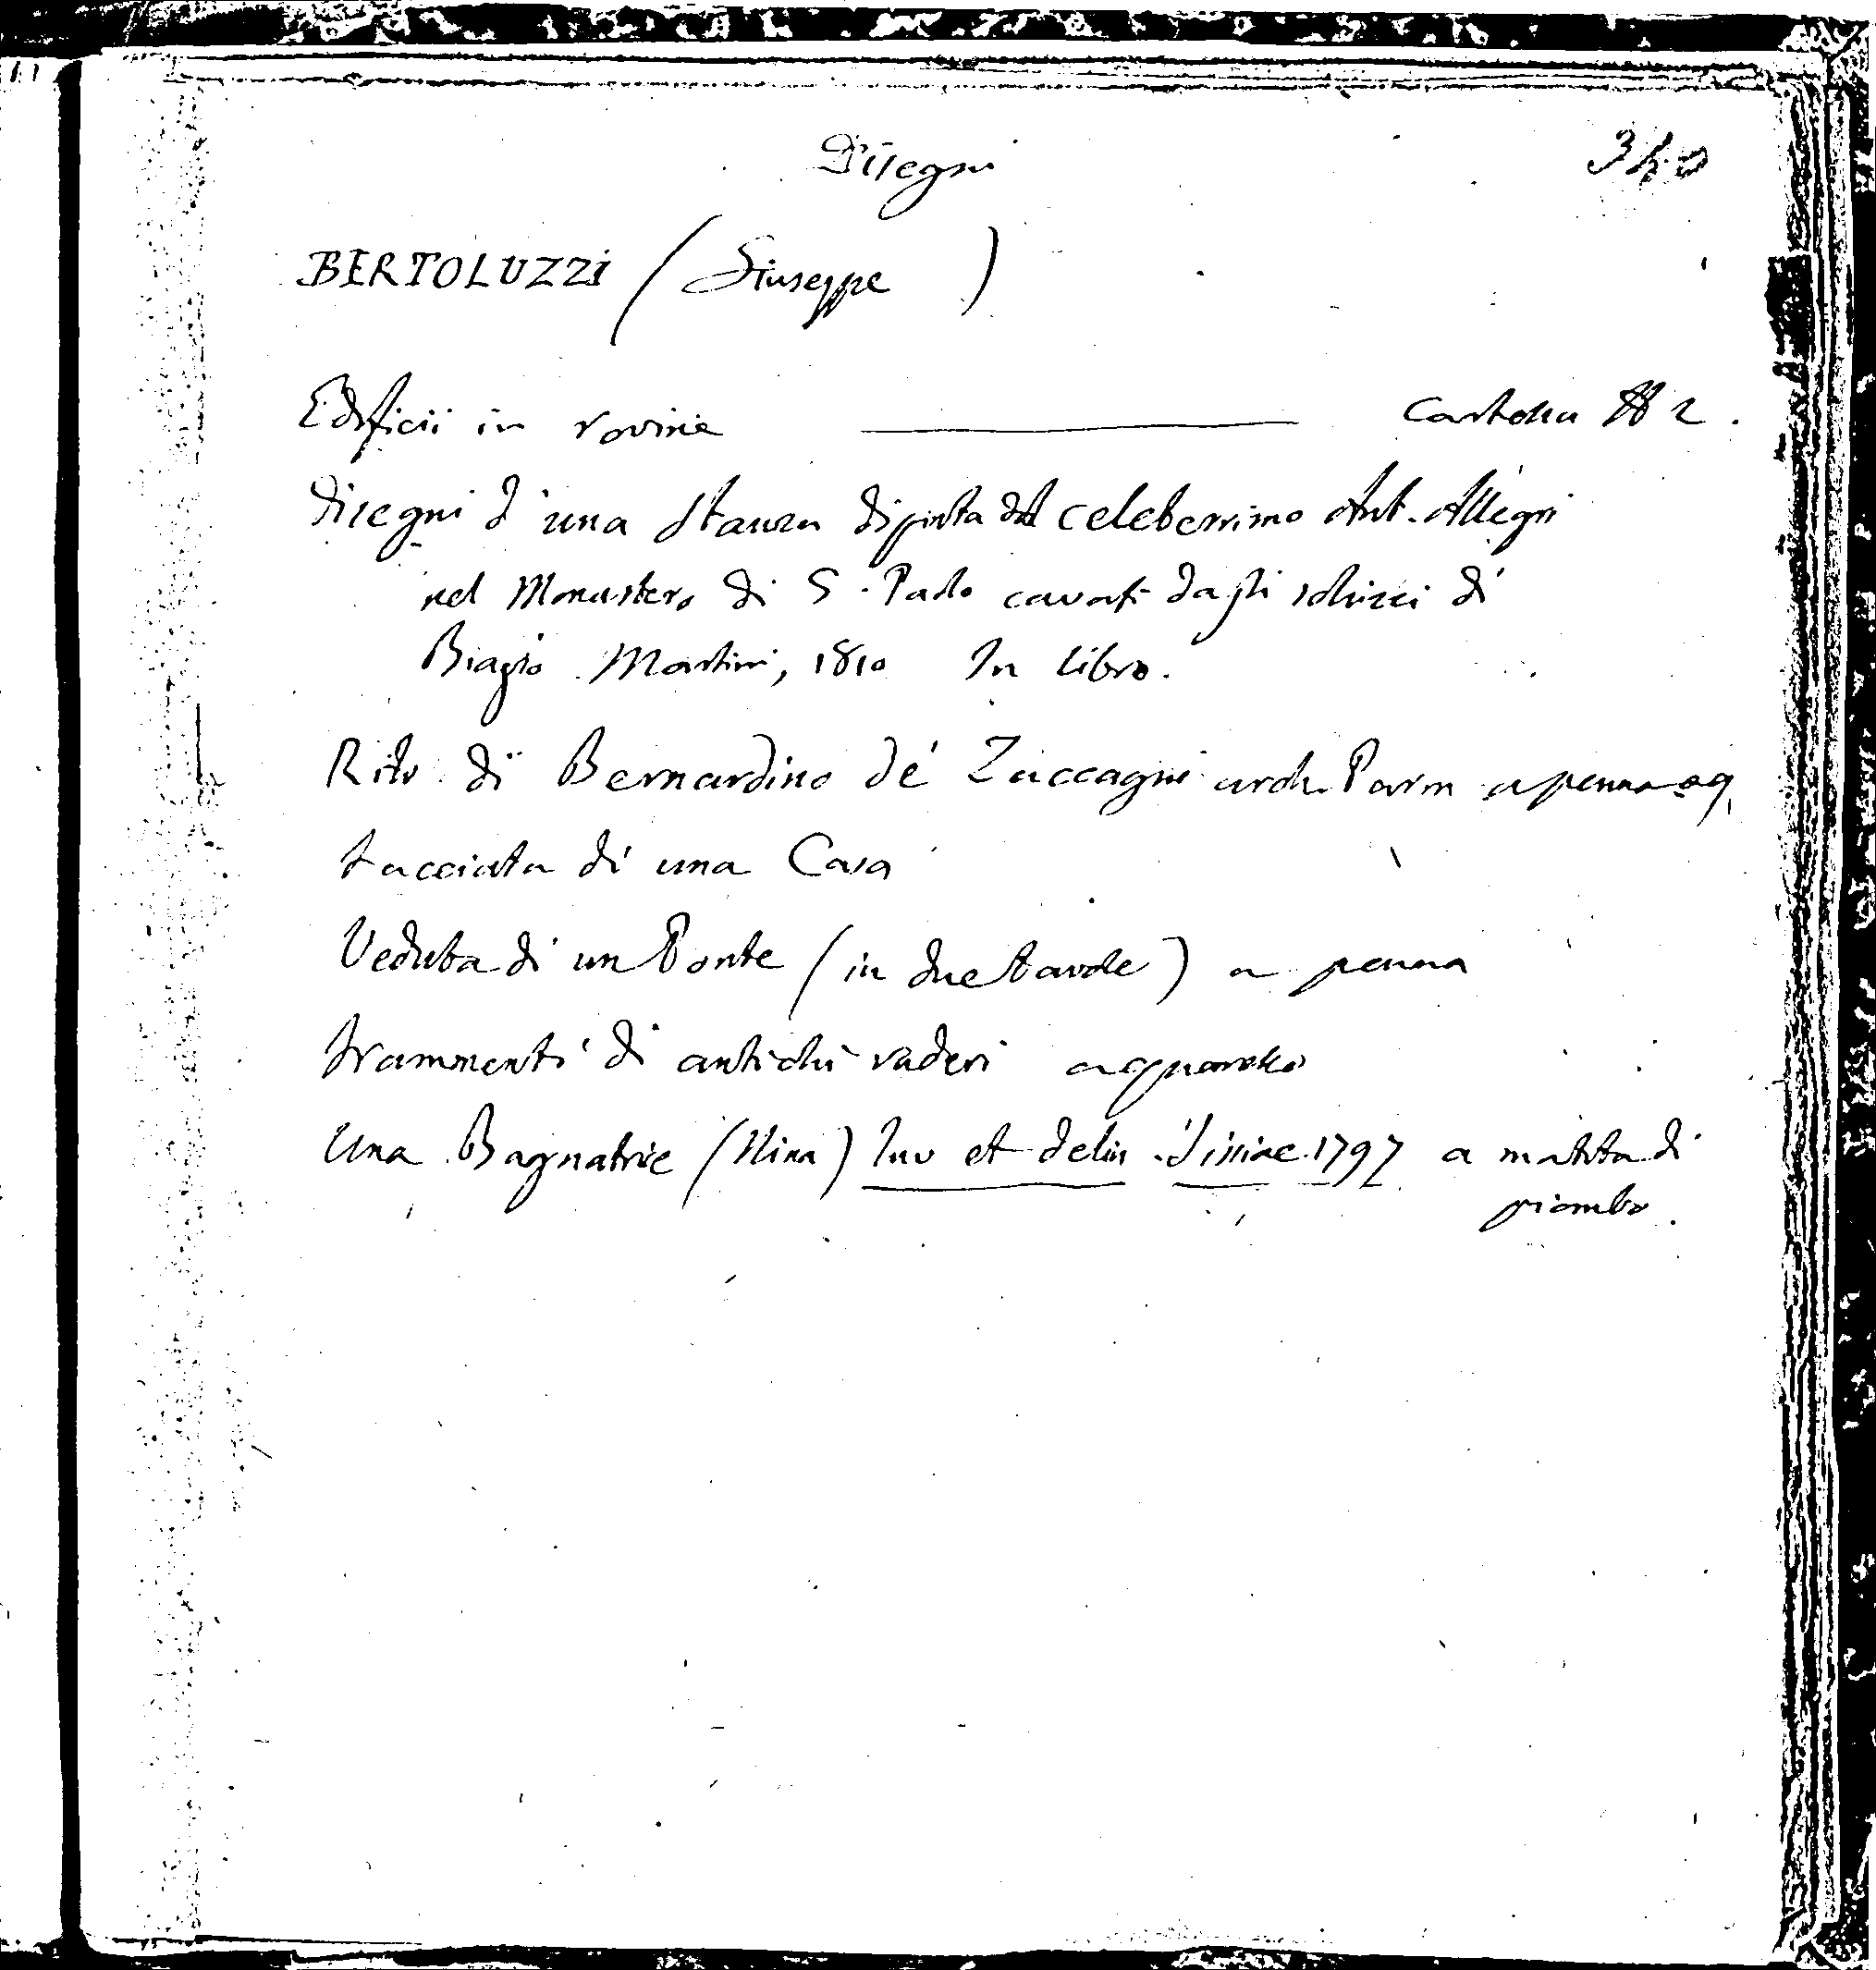 Disegni
340
BERTOLUZZI (Giuseppe )
Edificii in rovine ——— Cartella 2.
Disegni d'una stanza dipinta dal celeberrimo Ant. Allegri
nel Monastero di S. Paolo cavati dagli schizzi di
Biagio Martini, 1810 In libro.
Ritr. di Bernardino de' Zaccagni arch. Parm a penna acq.
Facciata di una Casa
Veduta di un Ponte (in due tavole) a penna
Frammenti di antichi ruderi acquarello
Una Bagnatrice (Nina) Inv et delin 1797 a matita di
piombo.